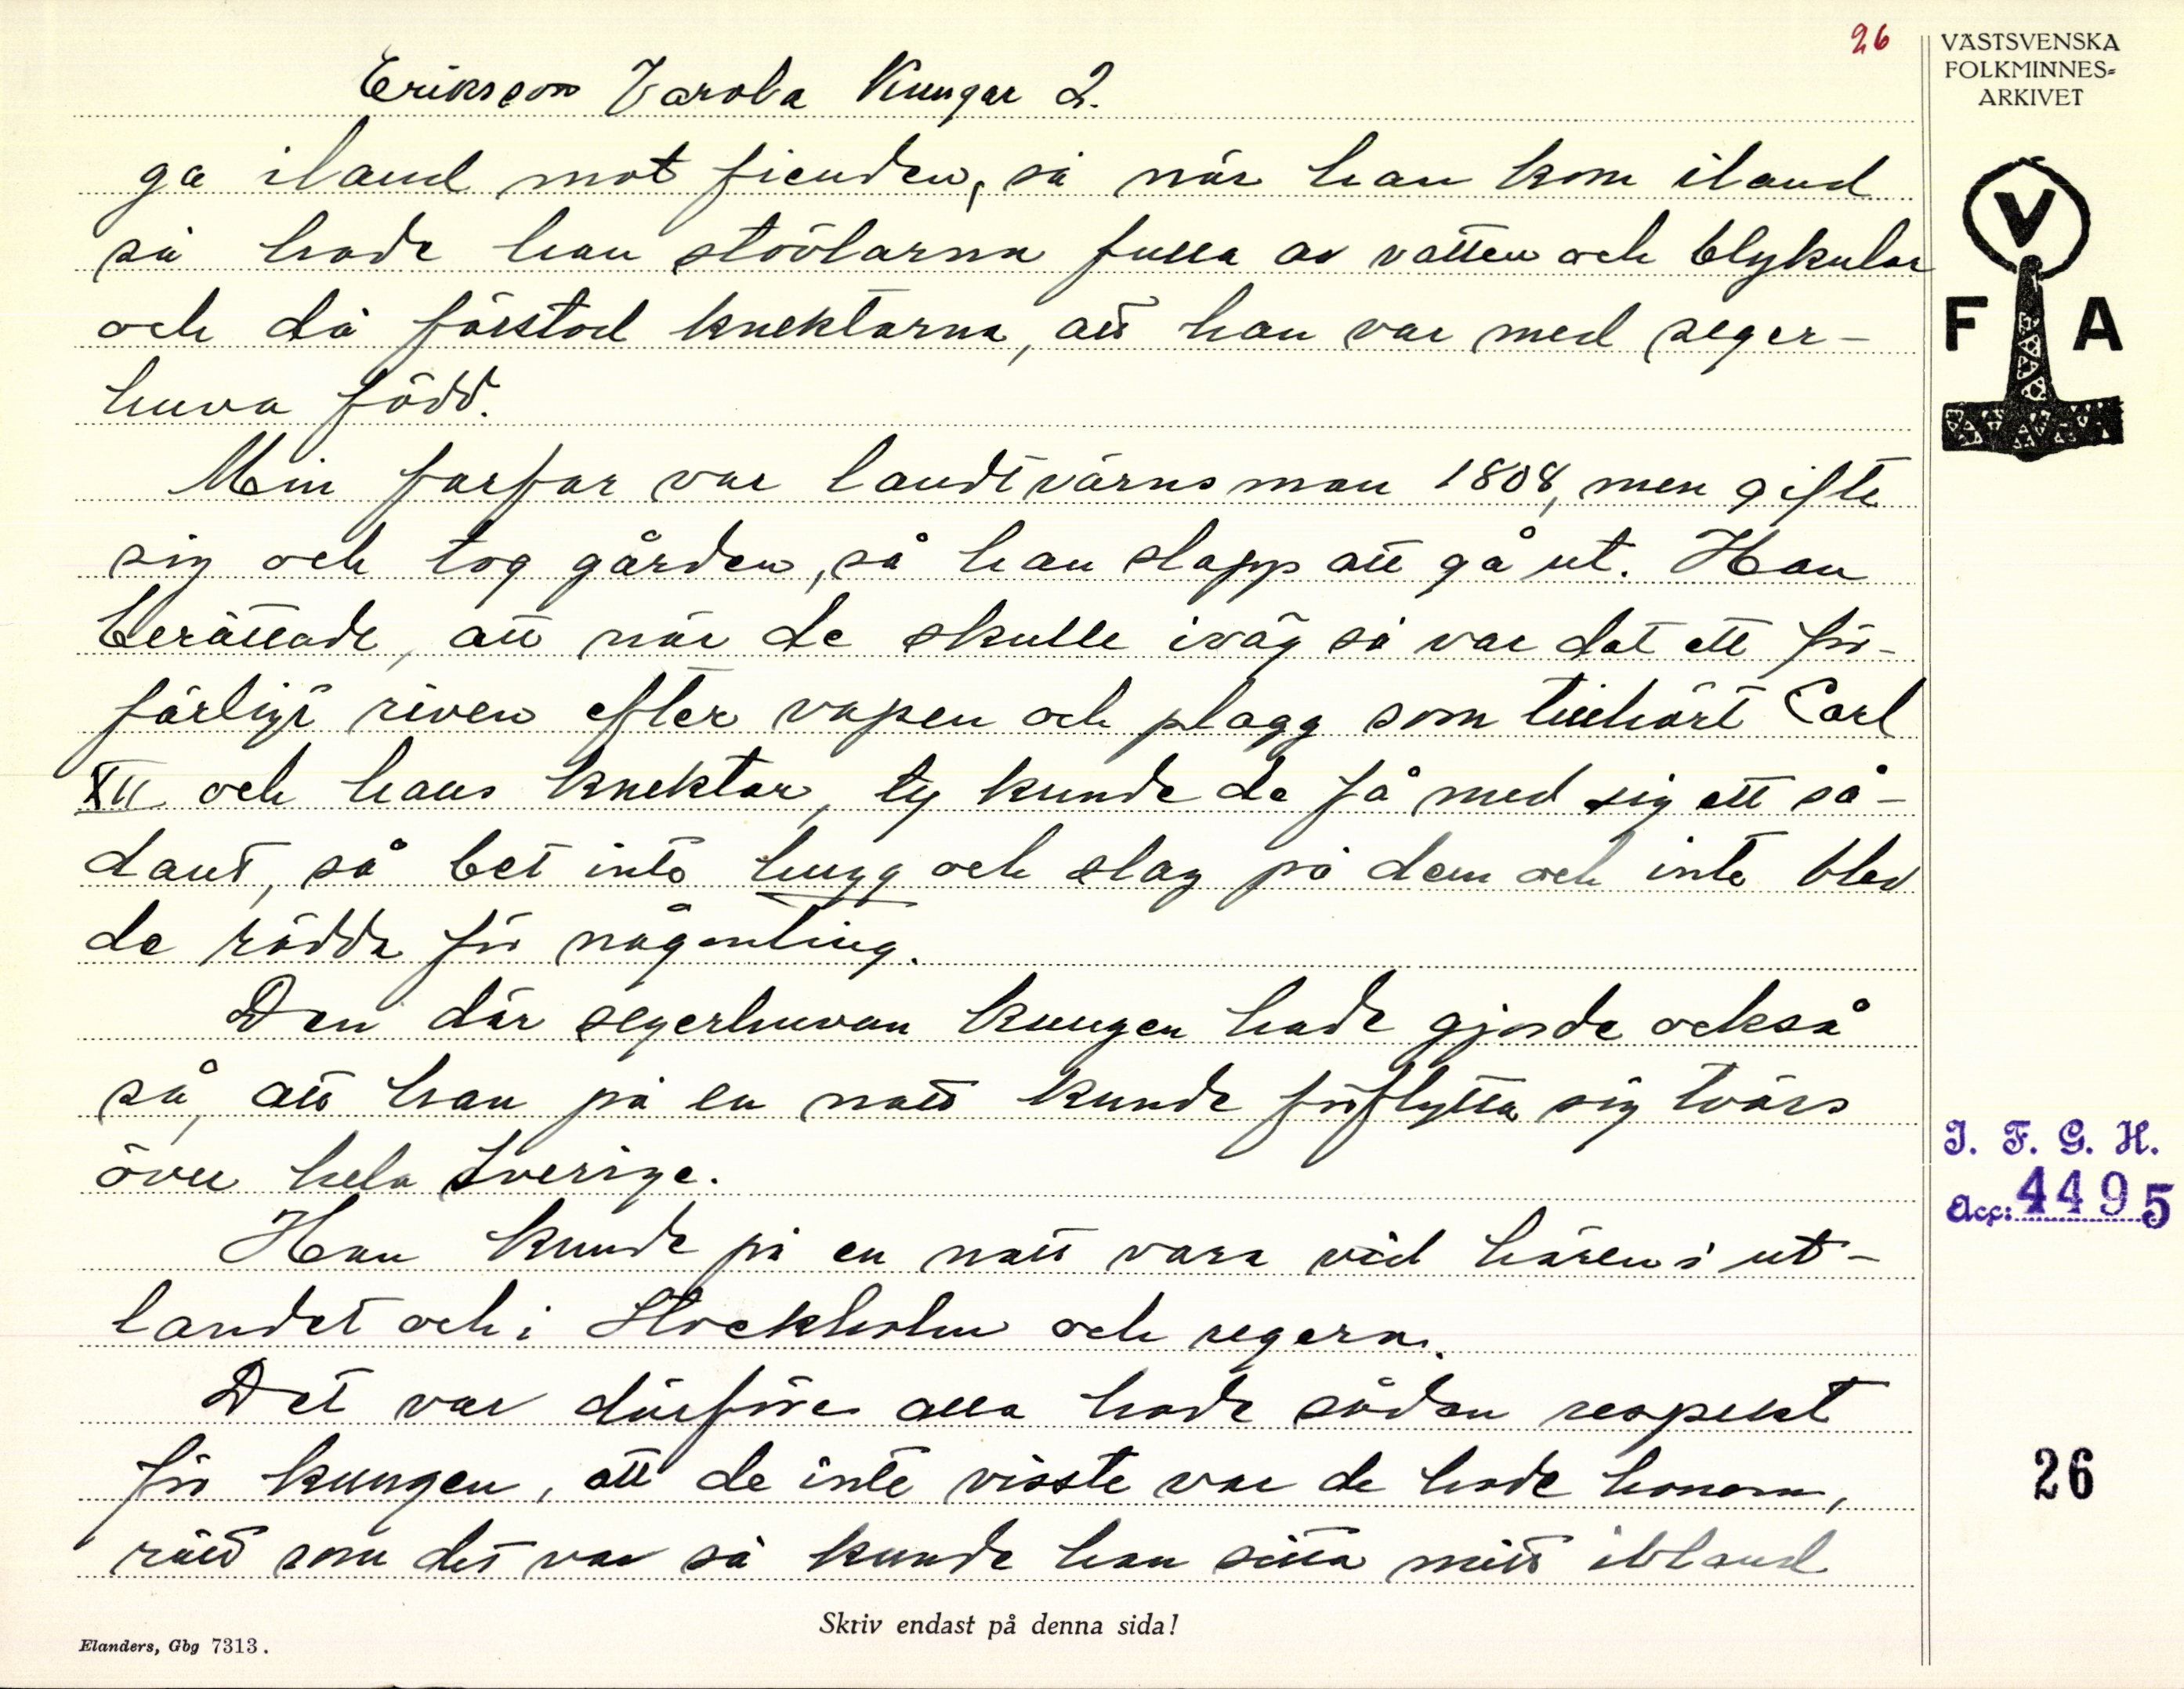 26
VÄSTSVENSKA
FOLKMINNES=
ARKIVET
Eriksson Varola Kungar 2.
ga iland mot fienden, så när han kom iland
så hade han stövlarna fulla av vatten och blykulor
och då förstod knektarna, att han var med seger-
huva född.
Min farfar var landtvärnsman 1808, men gifte
sig och tog gården, så han slapp att gå ut. Han
berättade, att när de skulle iväg så var dat ett för-
färligt riven efter vapen och plagg som tillhört Carl
XII och hans knektar, ty kunde de få med sig ett så-
dant, så bet inte hugg och slag på dem och inte blev
de rädda för någonting.
Den där segerhuvan kungen hade gjorde också
så, att han på en natt kunde förflytta sig tvärs
över hela Sverige.
Han kunde på en natt vara vid hären i ut-
landet och i Stockholm och regera.
Det var därföre alla hade sådan respekt
för kungen, att de inte visste var de hade honom,
rätt som det var så kunde han sitta mitt ibland
V
F A
I. F. G. H.
Acc: 4495
26
Skriv endast på denna sida!
Elanders, Gbg 7313.